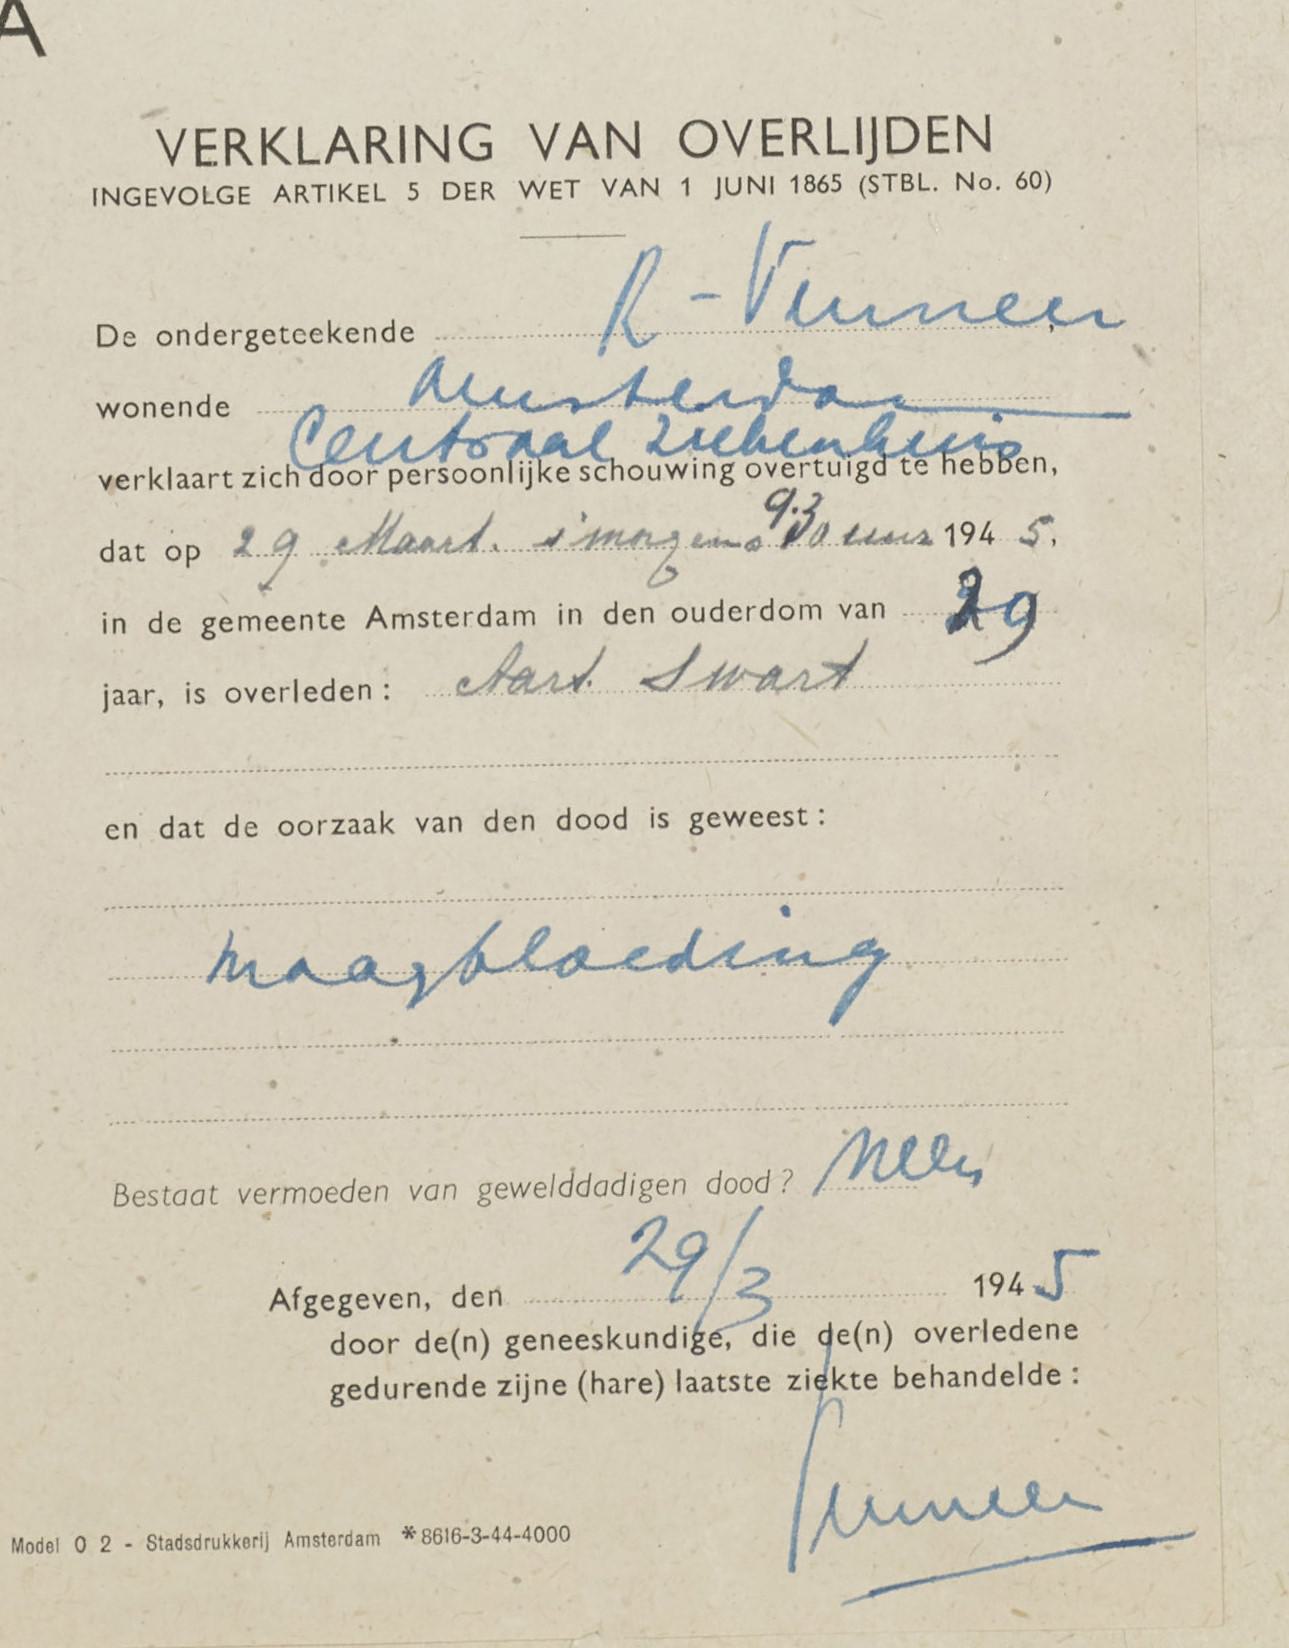 A
VERKLARING VAN OVERLIJDEN
INGEVOLGE ARTIKEL 5 DER WET VAN 1 JUNI 1865 (STBL. No. 60)
De ondergeteekende R -
wonende Amsterdam
Centraal Ziekenhuis
verklaart zich door persoonlijke schouwing overtuigd te hebben,
dat op 29 Maart. s'morgens 9.30 uur 194 5.
in de gemeente Amsterdam in den ouderdom van 29
jaar, is overleden: Aart Swart
en dat de oorzaak van den dood is geweest:
Maagbloeding
Bestaat vermoeden van gewelddadigen dood? Neen
Afgegeven, den 29/3 194 5
door de(n) geneeskundige, die de(n) overledene
gedurende zijne (hare) laatste ziekte behandelde:
Model O 2 - Stadsdrukkerij Amsterdam *8616-3-44-4000